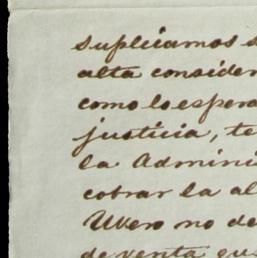 suplicamos s
alta consider
como lo espera
justicia, te
la Admini
cobrar la al
Uvero no de
de venta que